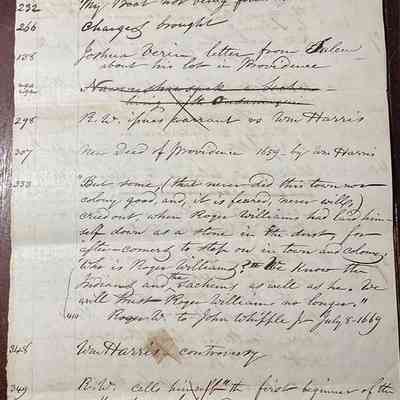 232 My Boat not being
266 Charges brought
188 Joshua Verin, letter from Salem
about his lot in Providence
298 R. W. issues warrant vs Wm Harris
307 New Deed of Providence 1659 - by Wm Harris
333 "But some, (that never did this town nor
colony good, and, it is feared, never will,)
cried out, when Roger Williams had laid him-
self down as a stone in the dust, for
after-comers to step on in town and colony,
'Who is Roger Williams? We know the
Indians and the sachems as well as he. We
will trust Roger Williams no longer.'"
Roger W. to John Whipple Jr July 8-1669
348 Wm Harris controversy
349 R. W. calls himself the first beginner of the